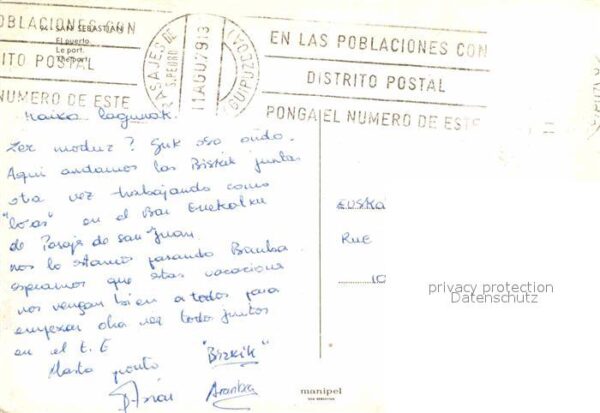 POBLACIONES CON
DISTRITO POSTAL
NUMERO DE ESTE
SAN SEBASTIAN
El puerto
Le port
The port
PASAJES DE
S. PEDRO
11 AGO 79 13
(GUIPUZCOA)
EN LAS POBLACIONES CON
DISTRITO POSTAL
PONGA EL NUMERO DE ESTE
Kaixo lagunok.
Zer moduz? Guk oso ondo.
Aqui andamos las Bizkik juntas
otra vez trabajando como
"locas" en el Bar
de Pasajes de San Juan.
nos lo estamos pasando Bamba
esperamos que estas vacaciones
nos vengan bien a todos para
empezar otra vez todos juntos
en el t. E
Hasta pronto "Bizkik"
Arantxa
EUSKA
RUE
10
privacy protection
Datenschutz
manipel
SAN SEBASTIAN